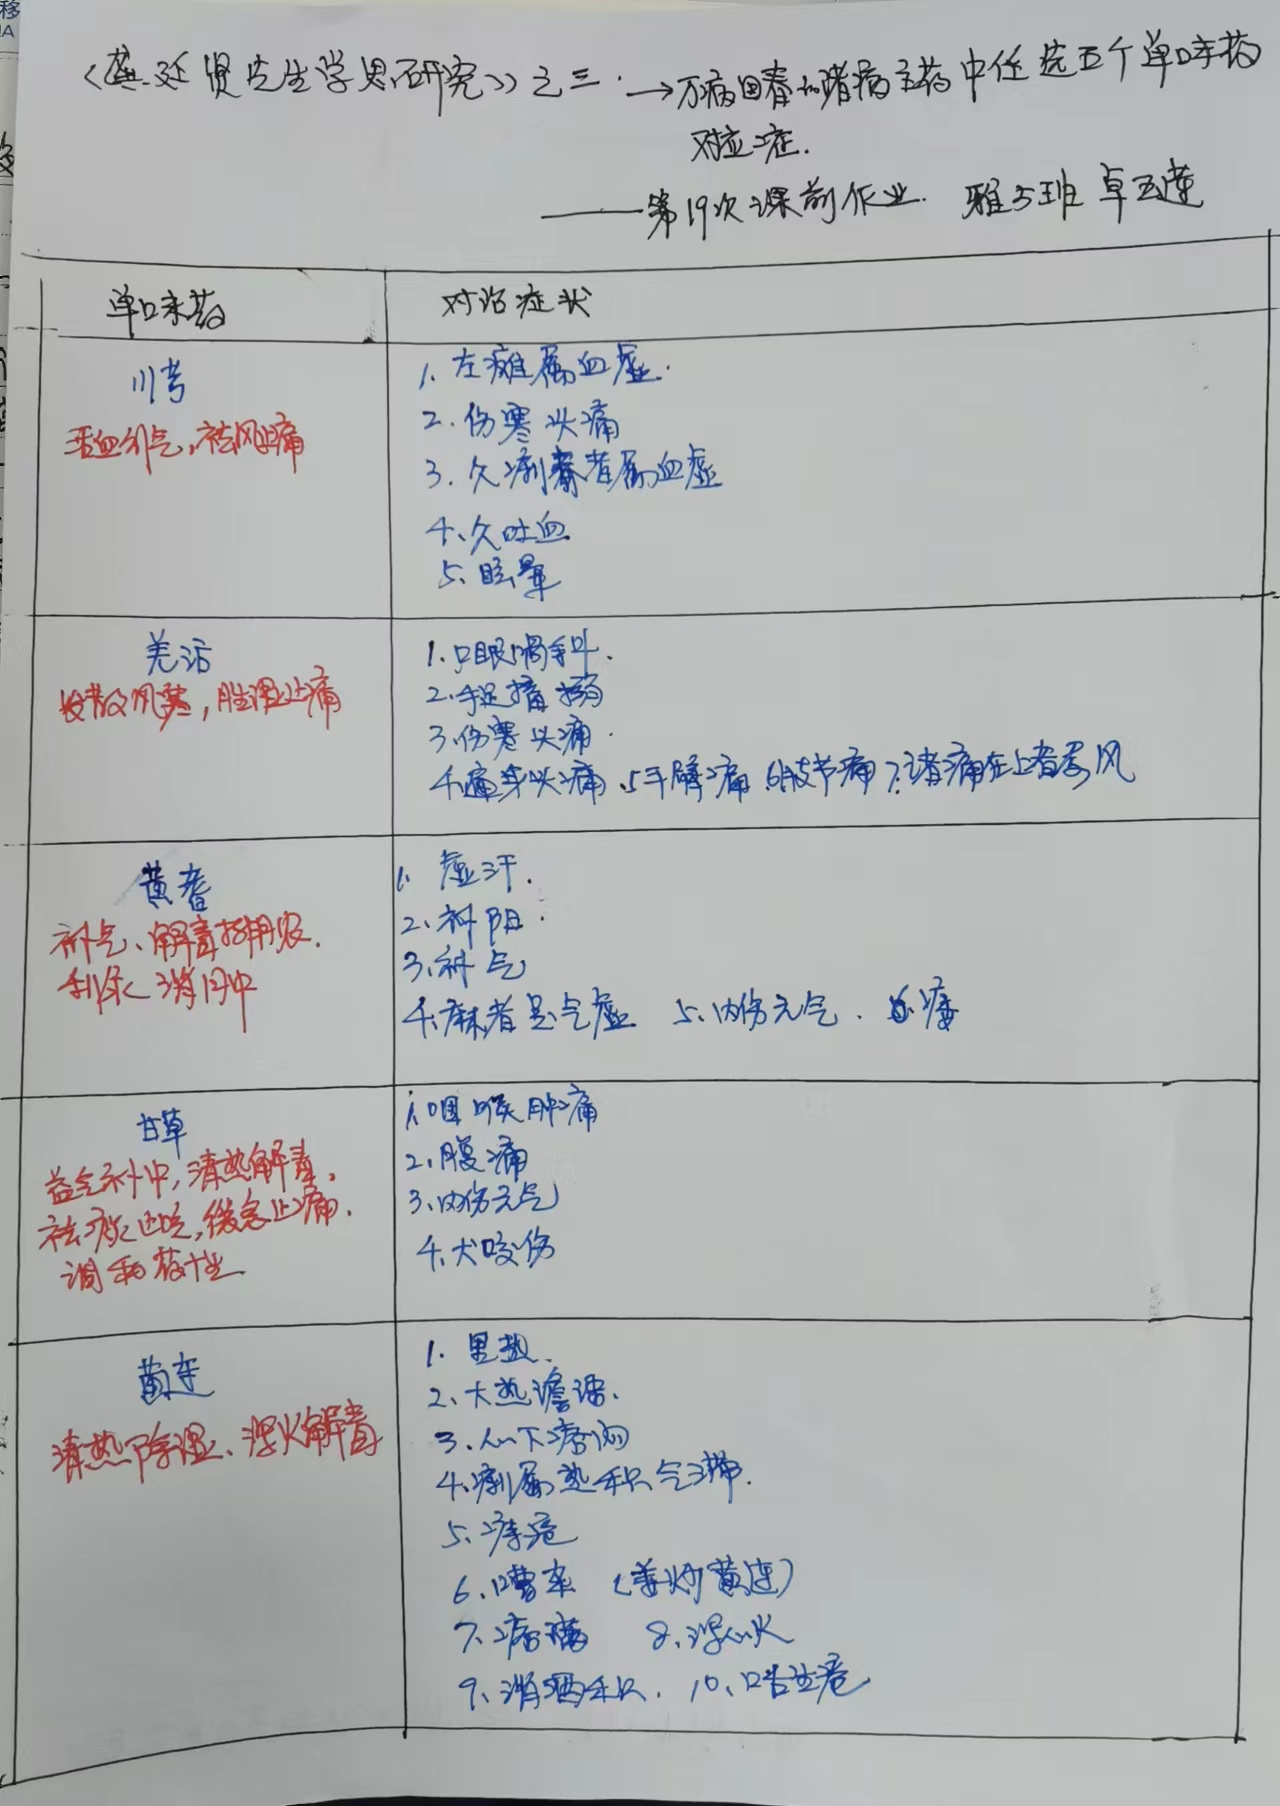 《龚廷贤先生学思研究》之三.→万病回春的诸病主药中任选五个单味药
对应症.
——第19次课前作业. 雅5班 卓玉莲
单味药
对治症状
川芎
活血行气,祛风止痛
1. 左瘫属血虚.
2. 伤寒头痛
3. 久痢 者属血虚
4. 久吐血
5. 眩晕
羌活
发散风寒,胜湿止痛
1. 口眼喎斜.
2. 手足搐搦
3. 伤寒头痛.
4. 遍身头痛 .5手臂痛 .6肢节痛 7.诸痛在上者属风
黄耆
补气、解毒排脓.
利尿消肿
1. 虚汗.
2. 补阳.
3. 补气
4. 麻者是气虚 5. 内伤元气. 6 痿
甘草
益气补中,清热解毒,
祛痰止咳,缓急止痛.
调和药性
1. 咽喉肿痛
2. 腹痛
3. 内伤元气
4. 犬咬伤
黄连
清热除湿、泻火解毒
1. 里热.
2. 大热谵语.
3. 心下痞闷
4. 痢属热积气滞.
5. 痔疮
6. 嘈杂 (姜炒黄连)
7. 8. 泻心火
9. 消酒积. 10. 口舌生疮